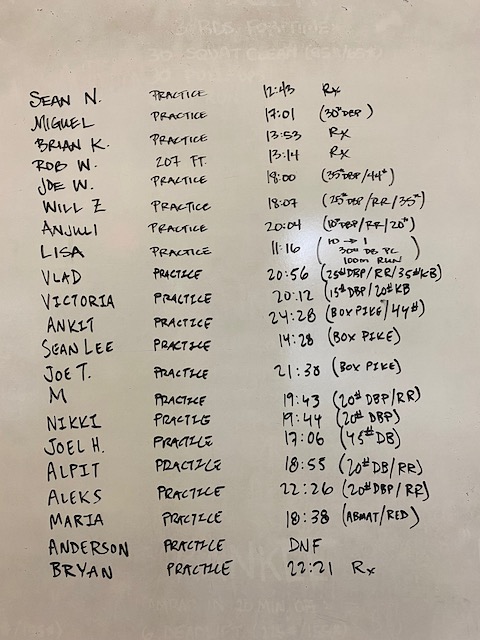 3 RDS FOR TIME
30 SQUAT CLEAN
SEAN N. PRACTICE 12:43 Rx
MIGUEL PRACTICE 17:01 (30# DBP)
BRIAN K. PRACTICE 13:53 Rx
ROB W. 207 FT. 13:14 Rx
JOE W. PRACTICE 18:00 (35# DBP/44#)
WILL Z PRACTICE 18:07 (25# DBP/RR/35#)
ANJULI PRACTICE 20:04 (10# DBP/RR/20#)
LISA PRACTICE 11:16 (10 → 1
30# DB PC
100m RUN)
VLAD PRACTICE 20:56 (25# DBP/RR/35# KB)
VICTORIA PRACTICE 20:12 (15# DBP/20# KB
ANKIT PRACTICE 24:28 (BOX PIKE/44#)
SEAN LEE PRACTICE 14:28 (BOX PIKE)
JOE T. PRACTICE 21:38 (BOX PIKE)
M PRACTICE 19:43 (20# DBP/RR)
NIKKI PRACTICE 19:44 (20# DBP)
JOEL H. PRACTICE 17:06 (45# DB)
ALPIT PRACTICE 18:55 (20# DB/RR)
ALEKS PRACTICE 22:26 (20# DBP/RR)
MARIA PRACTICE 18:38 (ABMAT/RED)
ANDERSON PRACTICE DNF
BRYAN PRACTICE 22:21 Rx